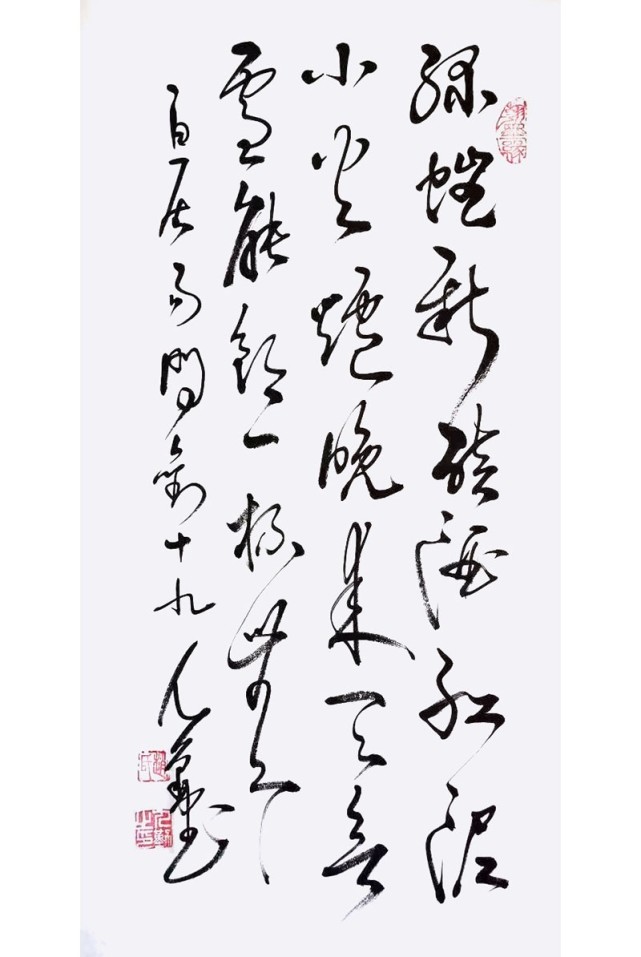 綠螘新醅酒紅泥
小火爐晚來天欲
雪能飲一杯無
白居易問劉十九